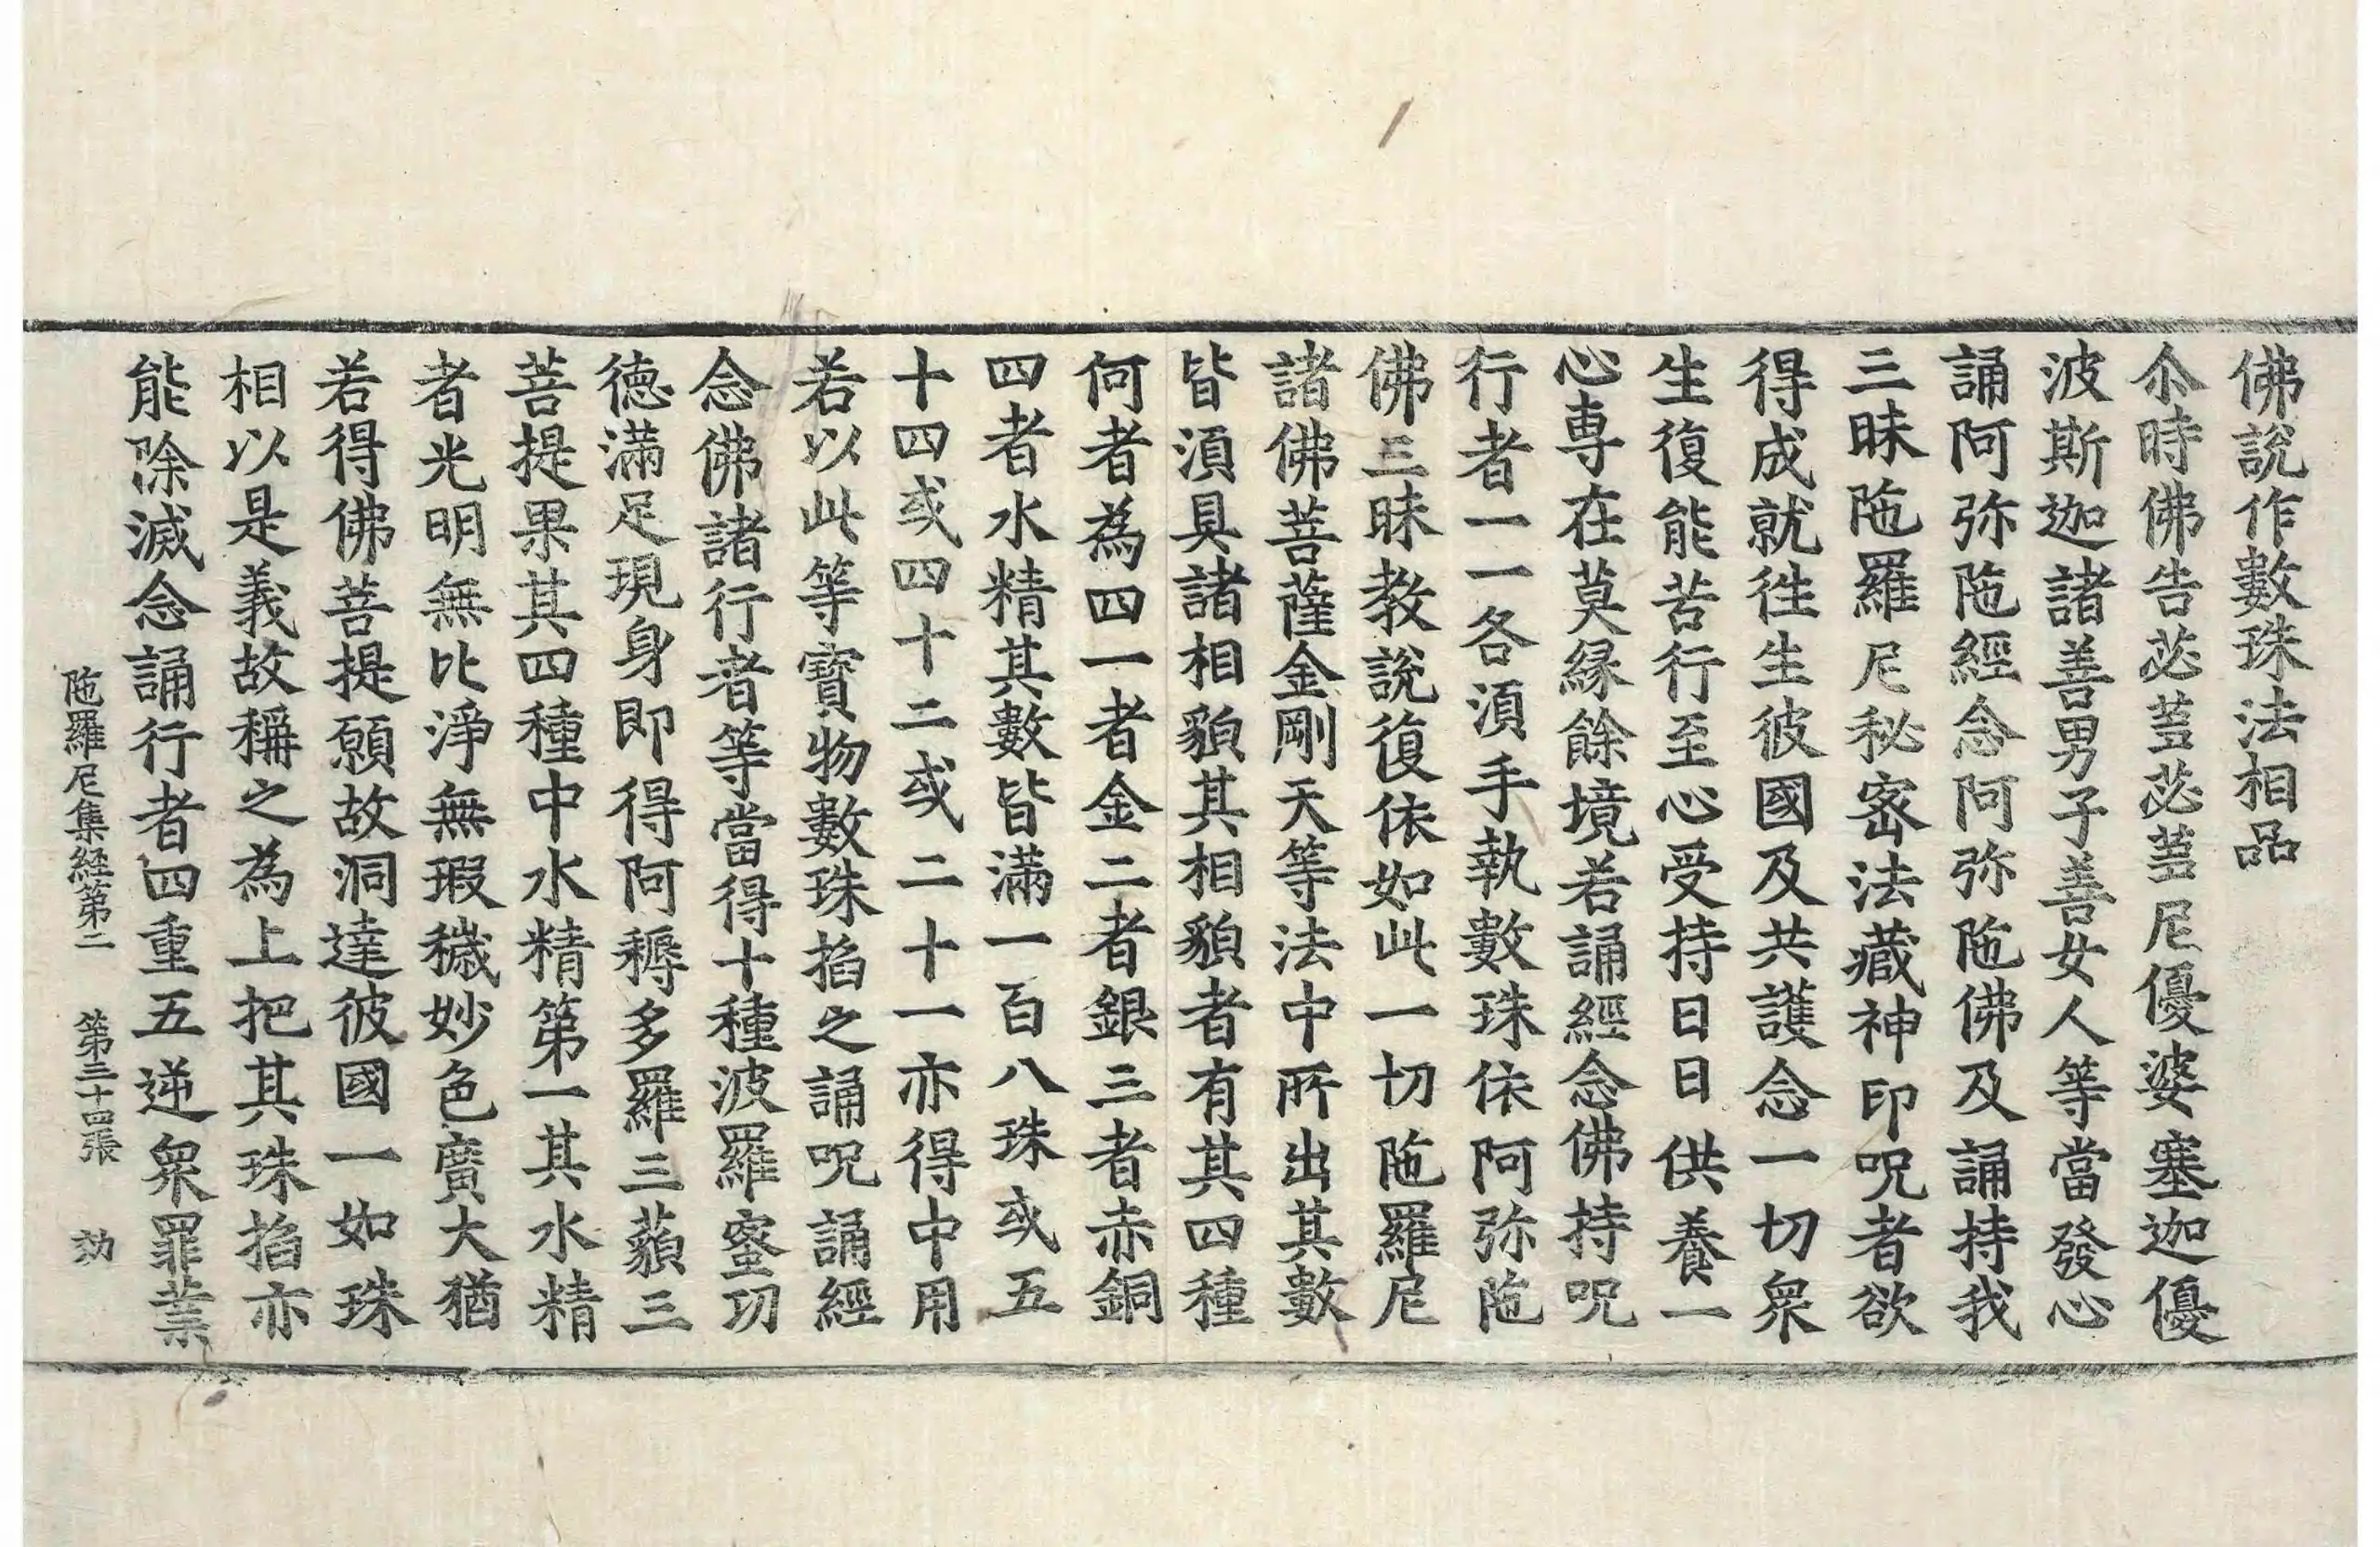 佛說作數珠法相品
尒時佛告苾蒭苾蒭尼優婆塞迦優
波斯迦諸善男子善女人等當發心
誦阿弥陁經念阿弥陁佛及誦持我
三昧陁羅尼秘密法藏神印呪者欲
得成就徃生彼國及共護念一切衆
生復能苦行至心受持日日供養一
心專在莫縁餘境若誦經念佛持呪
行者一一各湏手執數珠依阿弥陁
佛三昧教說復依如此一切陁羅尼
諸佛菩薩金剛天等法中所出其數
皆湏具諸相貌其相貌者有其四種
何者為四一者金二者銀三者赤銅
四者水精其數皆滿一百八珠或五
十四或四十二或二十一亦得中用
若以此等寶物數珠掐之誦呪誦經
念佛諸行者等當得十種波羅蜜功
德滿足現身即得阿耨多羅三藐三
菩提果其四種中水精第一其水精
者光明無比淨無瑕穢妙色廣大猶
若得佛菩提願故洞達彼國一如珠
相以是義故稱之為上把其珠掐亦
能除滅念誦行者四重五逆衆罪業
陁羅尼集經第二 第三十四張 劾